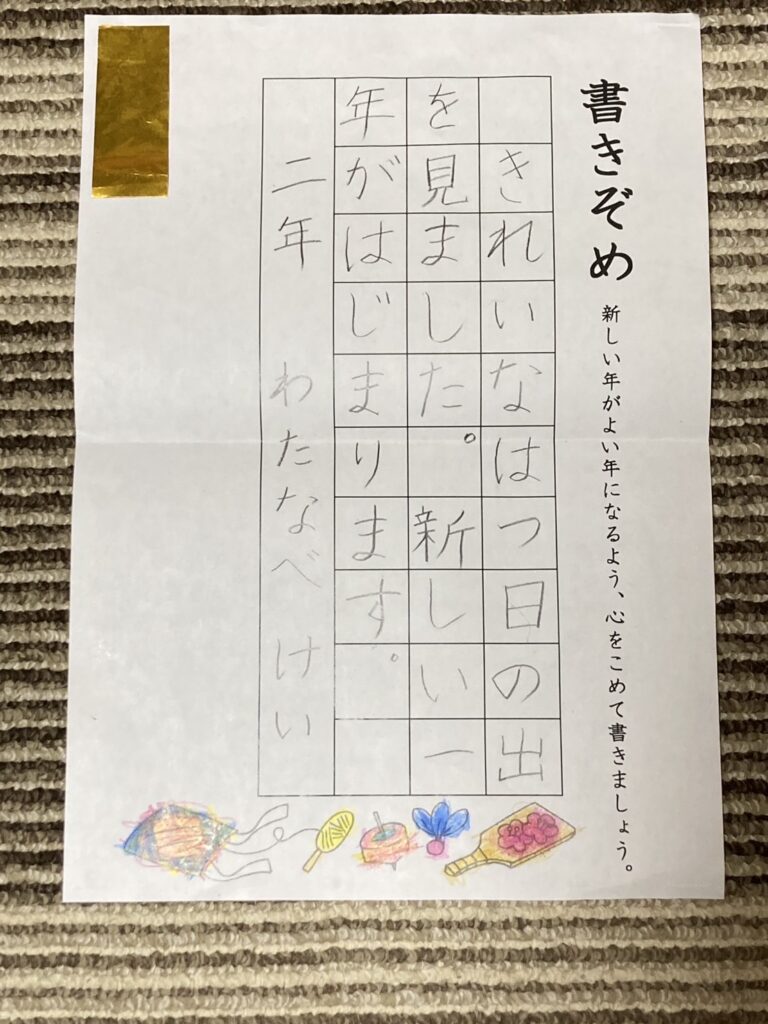 書きぞめ
新しい年がよい年になるよう、心をこめて書きましょう。
きれいなはつ日の出
を見ました。新しい一
年がはじまります。
二年 わたなべ けい